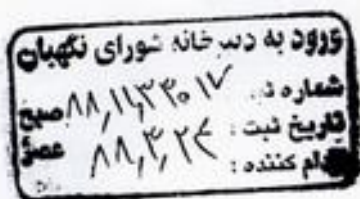 ورود به دبیرخانه شورای نگهبان
شماره ثبت: ۸۸٫۱۱٫۳۳۰۱۷ صبح
تاریخ ثبت: ۸۸٫۳٫۲۴ عصر
اقدام کننده: